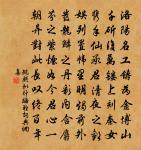 洛陽名工鑄為金博山
千斫復萬鏤上刻秦女
攜手仙承君清夜之歡
娛列置幃里明燭前外
發龍鱗之丹彩內含
麝芬之紫煙如今君心一
朝異對此長嘆終百年